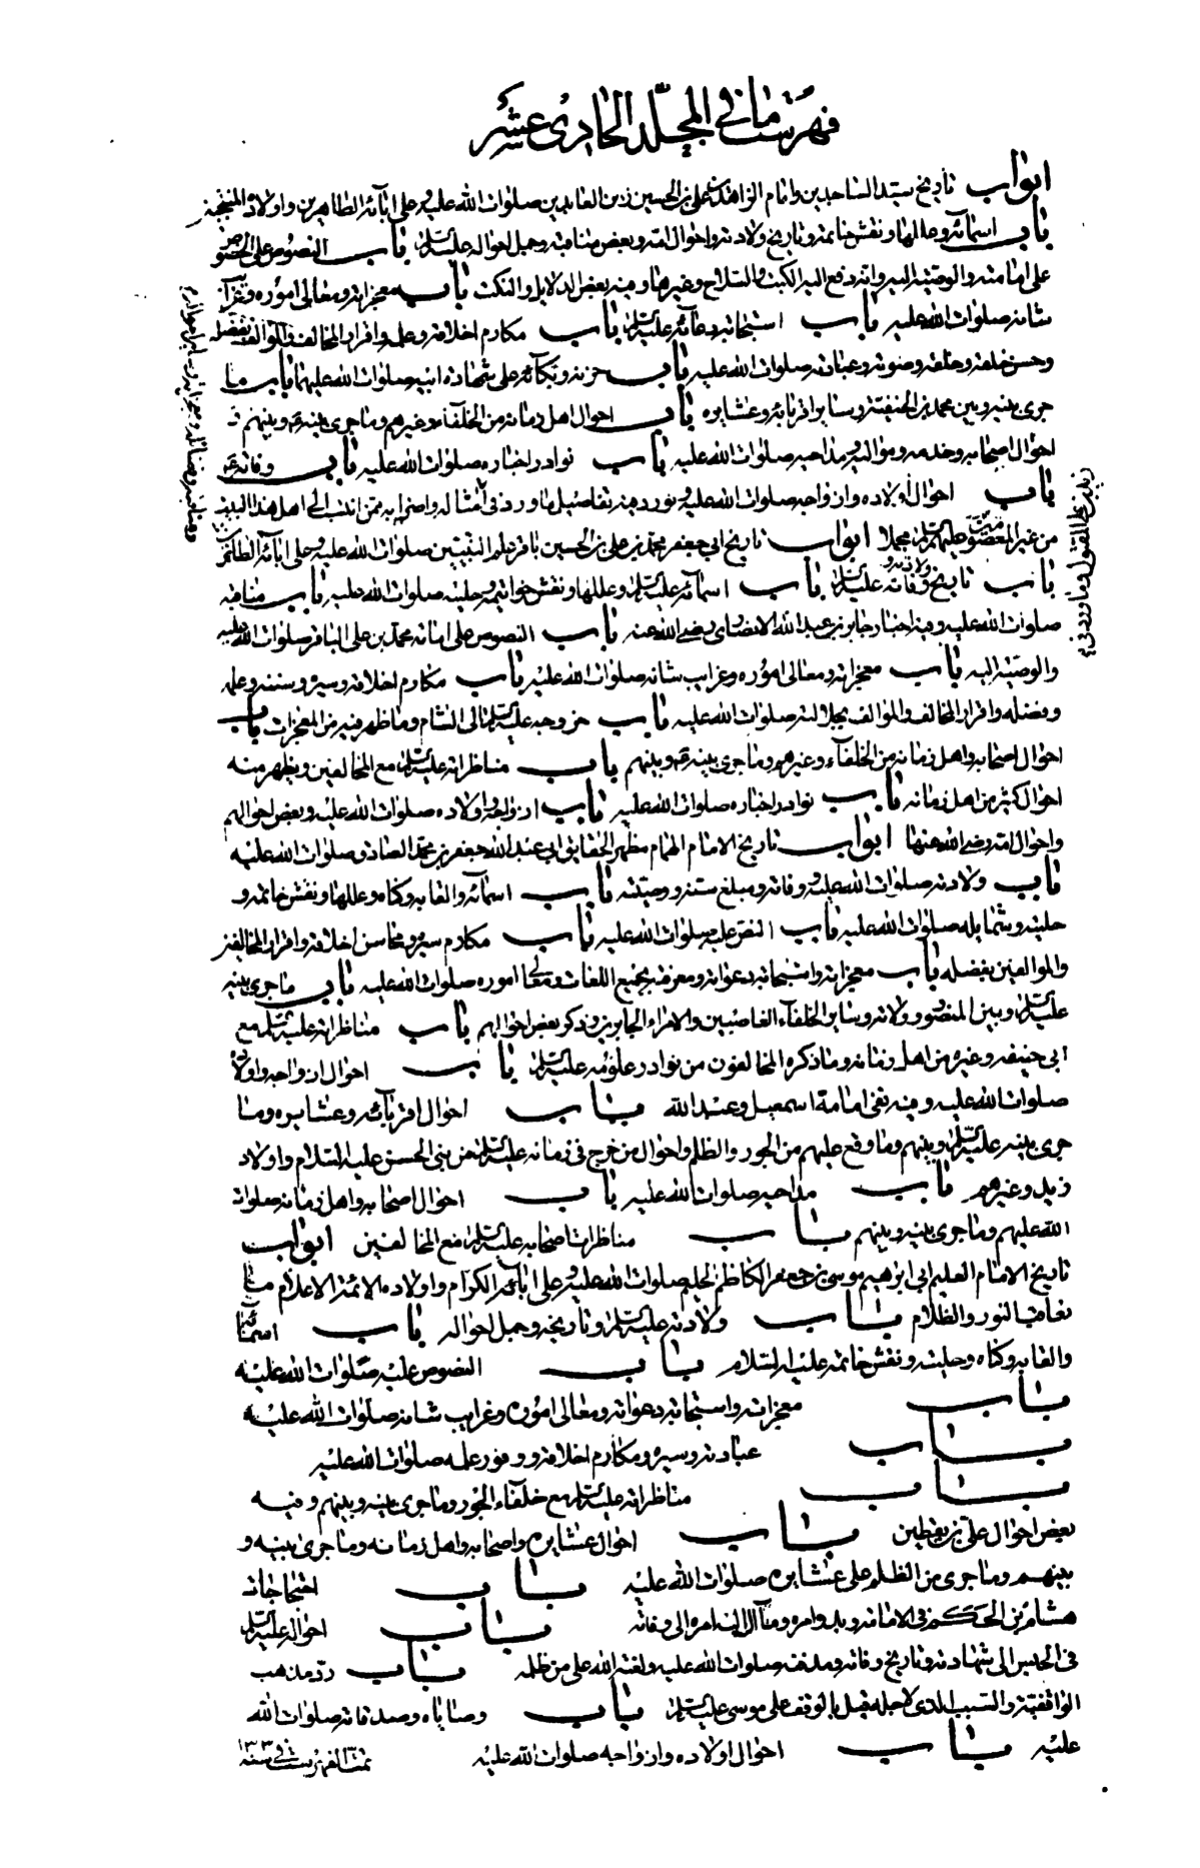 فهرست ما في المجلّد الحادي عشر
ابواب تاريخ سيد الساجدين وامام الزاهدين علي بن الحسين زين العابدين صلوات الله عليه وعلى ابائه الطاهرين واولاده المنتجبين
باب اسمائه وعللها ونقش خاتمه وتاريخ ولادته واحوال امه وبعض مناقبه وجمل احواله عليه السلام باب النصوص على الخصوص
على امامته والوصية اليه وانه دفع اليه الكتب والسلاح وغيرها وفيه بعض الدلايل والنكت باب معجزاته ومعالي اموره وغرايب
شانه صلوات الله عليه باب استجابة دعائه عليه السلام باب مكارم اخلاقه وعلمه واقرار المخالف والموالف بفضله
وحسن خلقه وخلقه وصوته وعبادته صلوات الله عليه باب حزنه وبكائه على شهادة ابيه صلوات الله عليهما باب ما
جرى بينه وبين محمد بن الحنفية وساير اقربائه وعشايره باب احوال اهل زمانه من الخلفاء وغيرهم وما جرى بينه وبينهم و
احوال اصحابه وخدمه ومواليه ومداحيه صلوات الله عليه باب نوادر اخباره صلوات الله عليه باب وفاته
باب احوال اولاده وازواجه صلوات الله عليه ونورد فيه تفاصيل ما ورد في امثاله واضرابه ممن انتسب الى اهل هذا البيت
من غير المعصومين عليهم السلام مجملا ابواب تاريخ ابي جعفر محمد بن علي بن الحسين باقر علم النبيين صلوات الله عليه وعلى ابائه الطاهرين
باب تاريخ ولادته ووفاته عليه السلام باب اسمائه عليه السلام وعللها ونقش خواتيمه وحليته صلوات الله عليه باب مناقبه
صلوات الله عليه وفيه اخبار جابر بن عبد الله الانصاري رضي الله عنه باب النصوص على امامة محمد بن علي الباقر صلوات الله عليه
والوصية اليه باب معجزاته ومعالي اموره وغرايب شانه صلوات الله عليه باب مكارم اخلاقه وسيره وسننه وعلمه
وفضله واقرار المخالف والموالف بجلالته صلوات الله عليه باب خروجه عليه السلام الى الشام وما ظهر فيه من المعجزات باب
احوال اصحابه واهل زمانه من الخلفاء وغيرهم وما جرى بينه وبينهم باب مناظراته عليه السلام مع المخالفين ويظهر منه
احوال كثير من اهل زمانه باب نوادر اخباره صلوات الله عليه باب ازواجه واولاده صلوات الله عليه وبعض احوالهم
واحوال امه رضي الله عنها ابواب تاريخ الامام الهمام مظهر الحقايق ابي عبد الله جعفر بن محمد الصادق صلوات الله عليه
باب ولادته صلوات الله عليه ووفاته ومبلغ سنه ووصيته باب اسمائه والقابه وكناه وعللها ونقش خاتمه و
حليته وشمايله صلوات الله عليه باب النص عليه صلوات الله عليه باب مكارم سيره ومحاسن اخلاقه واقرار المخالفين
والموالفين بفضله باب معجزاته واستجابة دعواته ومعرفته بجميع اللغات ومعالي اموره صلوات الله عليه باب ما جرى بينه
عليه السلام وبين المنصور وولاته وساير الخلفاء الغاصبين والامراء الجايرين وذكر بعض احوالهم باب مناظراته عليه السلام مع
ابي حنيفه وغيره من اهل زمانه وما ذكره المخالفون من نوادر علومه عليه السلام باب احوال ازواجه واولاده
صلوات الله عليه وفيه نفي امامة اسمعيل وعبد الله باب احوال اقربائه وعشايره وما
جرى بينه عليه السلام وبينهم وما وقع عليهم من الجور والظلم واحوال من خرج في زمانه عليه السلام من بني الحسن عليه السلام واولاد
زيد وغيرهم باب مداحيه صلوات الله عليه باب احوال اصحابه واهل زمانه صلوات
الله عليهم وما جرى بينه وبينهم باب مناظرات اصحابه عليه السلام مع المخالفين ابواب
تاريخ الامام العليم ابي ابراهيم موسى بن جعفر الكاظم الحليم صلوات الله عليه وعلى ابائه الكرام واولاده الائمة الاعلام ما
تعاقب النور والظلام باب ولادته عليه السلام وتاريخه وجمل احواله باب اسمائه
والقابه وكناه وحليته ونقش خاتمه عليه السلام باب النصوص عليه صلوات الله عليه
باب معجزاته واستجابة دعواته ومعالي اموره وغرايب شانه صلوات الله عليه
باب عبادته وسيره ومكارم اخلاقه ووفور علمه صلوات الله عليه
باب مناظراته عليه السلام مع خلفاء الجور وما جرى بينه وبينهم وفيه
بعض احوال علي بن يقطين باب احوال عشايره واصحابه واهل زمانه وما جرى بينه و
بينهم وما جرى من الظلم على عشايره صلوات الله عليه باب احتجاجات
هشام بن الحكم في الامامة وبدو امره وما آل اليه امره الى وفاته باب احواله عليه السلام
في الحبس الى شهادته وتاريخ وفاته ومدفنه صلوات الله عليه ولعنة الله على من ظلمه باب رد مذهب
الواقفية والسبب الذي لاجله قيل بالوقف على موسى عليه السلام باب وصاياه وصدقاته صلوات الله
عليه باب احوال اولاده وازواجه صلوات الله عليه تمت الفهرست في سنه